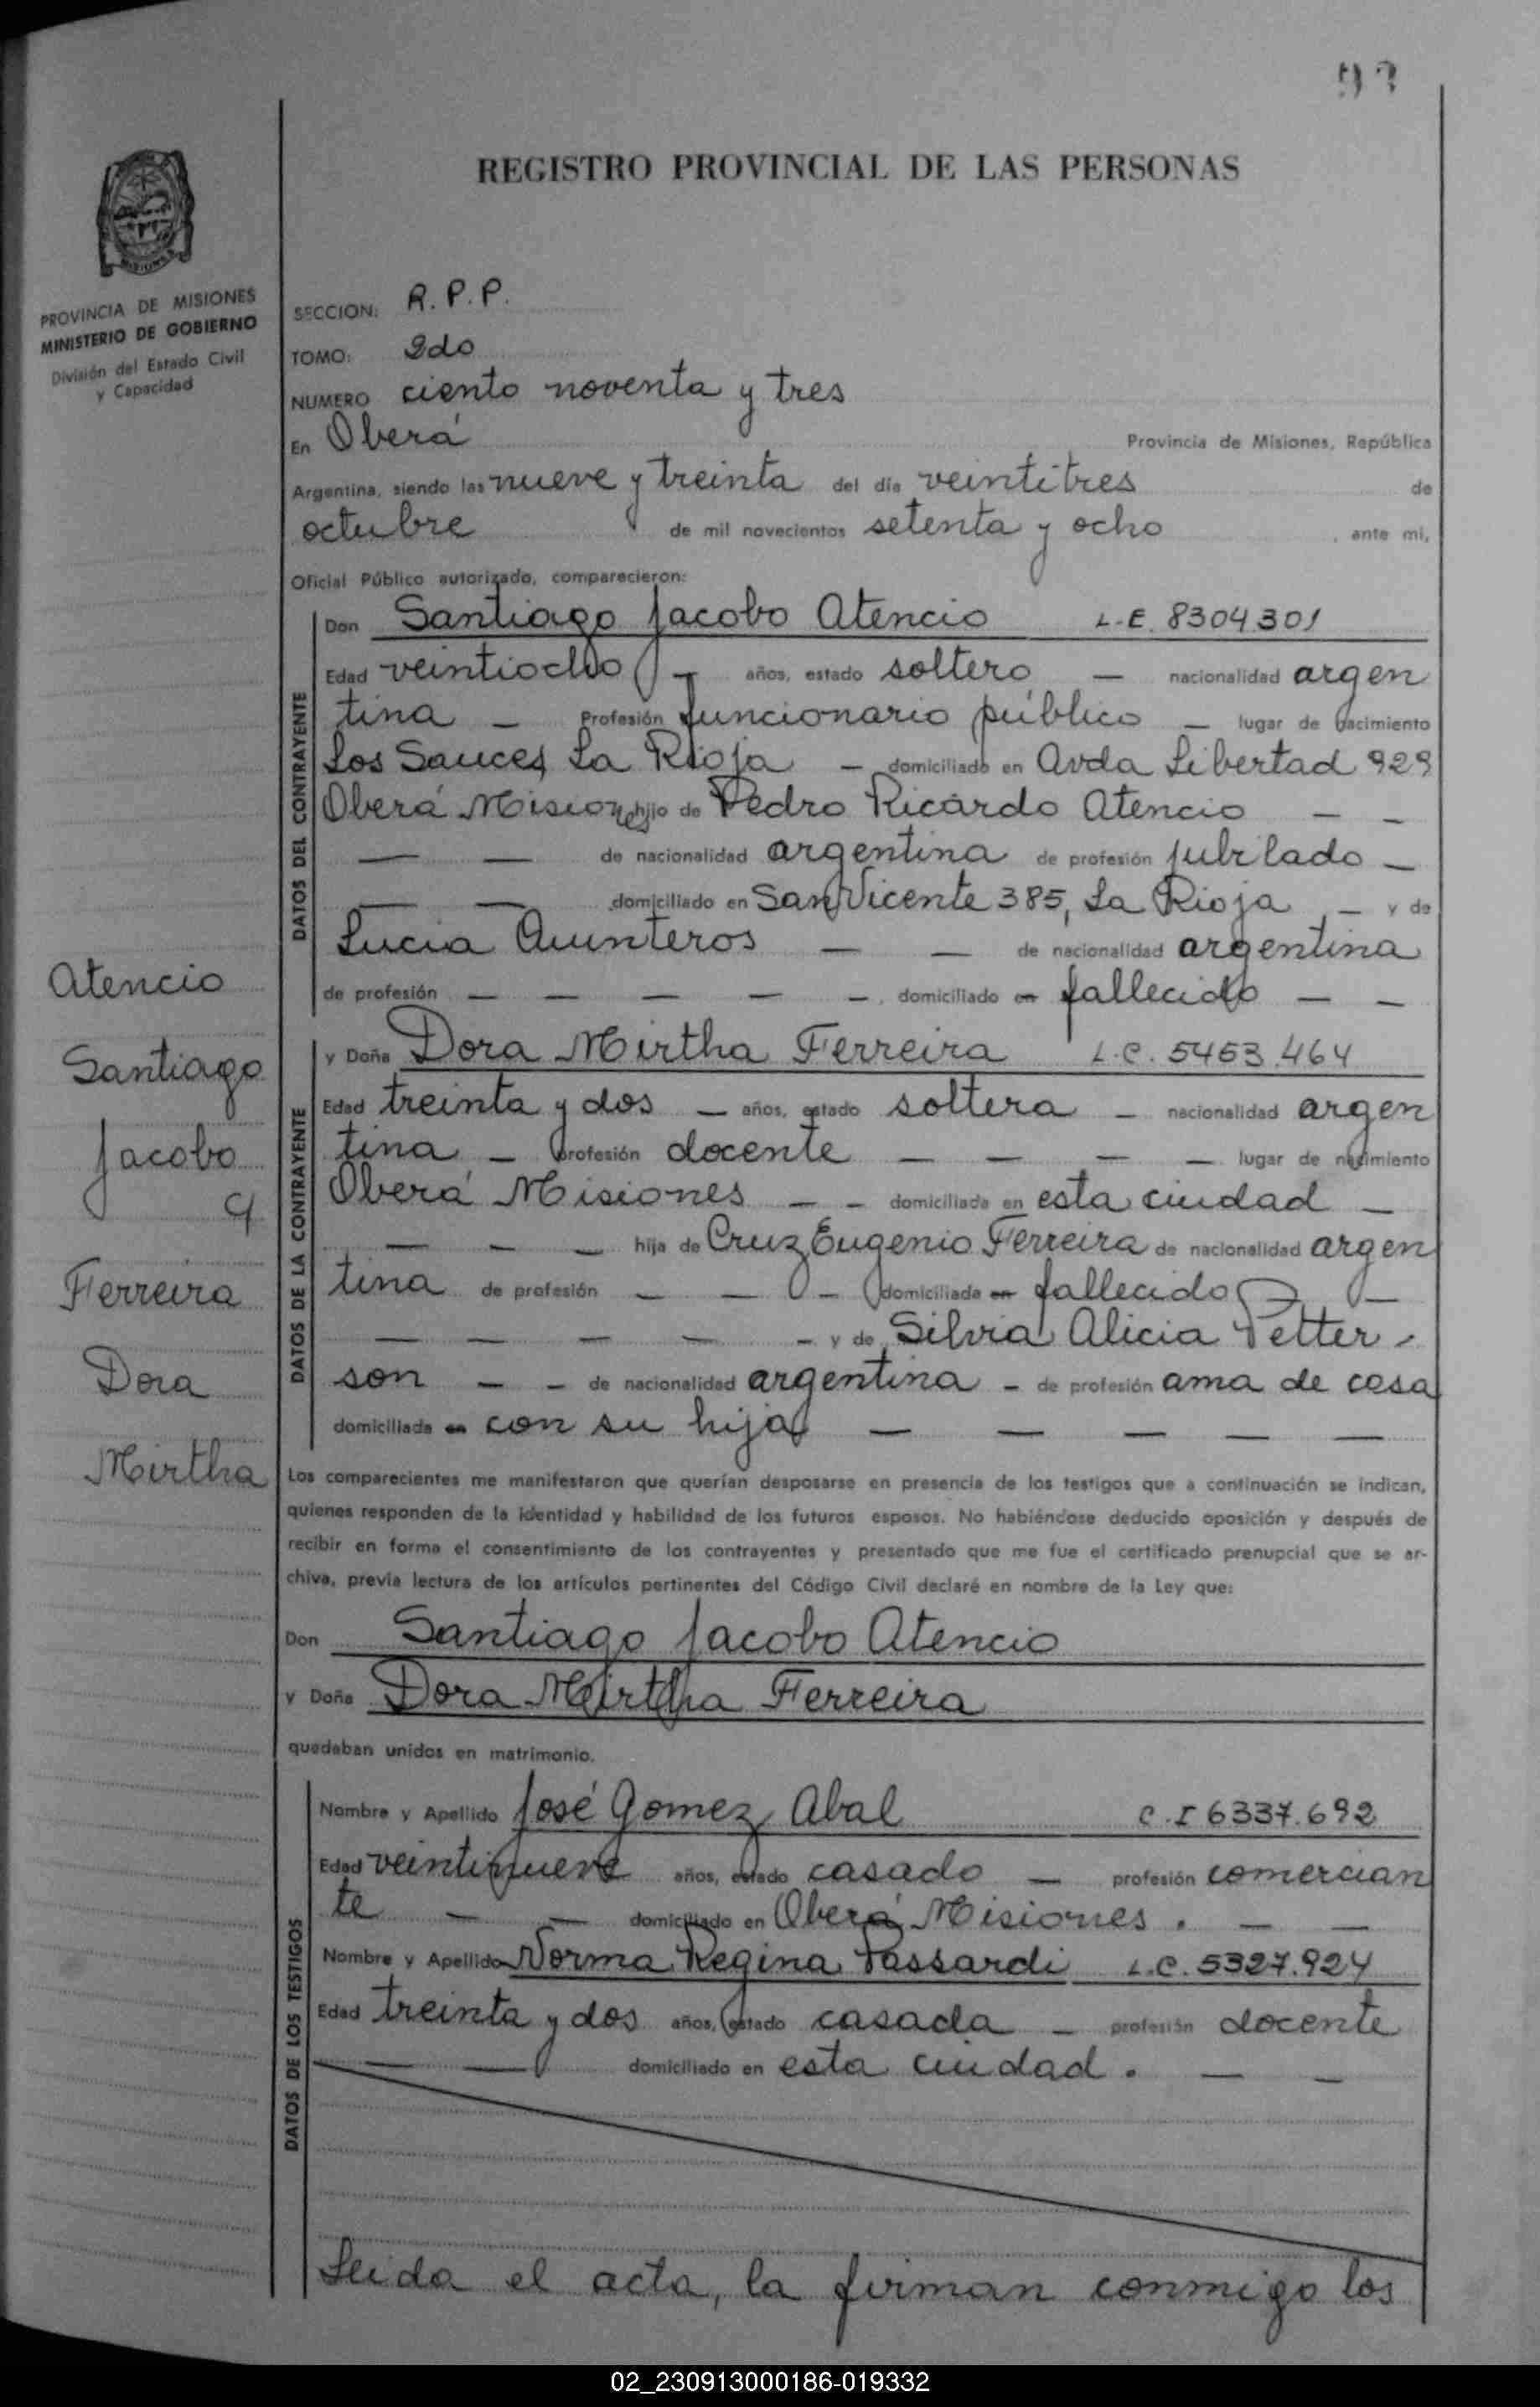 93
REGISTRO PROVINCIAL DE LAS PERSONAS
MISIONES
PROVINCIA DE MISIONES
MINISTERIO DE GOBIERNO
División del Estado Civil
y Capacidad
SECCION: R. P. P.
TOMO: 2do
NUMERO ciento noventa y tres
En Oberá Provincia de Misiones, República
Argentina, siendo las nueve y treinta del día veintitres de
octubre de mil novecientos setenta y ocho, ante mi,
Oficial Público autorizado, comparecieron:
DATOS DEL CONTRAYENTE
Don Santiago Jacobo Atencio L.E. 8304301
Edad veintiocho — años, estado soltero — nacionalidad argen
tina — Profesión funcionario público — lugar de nacimiento
Los Sauces, La Rioja — domiciliado en Avda Libertad 929
Oberá Misiones hijo de Pedro Ricardo Atencio — —
— — de nacionalidad argentina de profesión jubilado —
— — domiciliado en San Vicente 385, La Rioja, — y de
Lucia Quinteros — — de nacionalidad argentina
de profesión — — — — —, domiciliado en fallecido — —
DATOS DE LA CONTRAYENTE
y Doña Dora Mirtha Ferreira L.C. 5453.464
Edad treinta y dos — años, estado soltera — nacionalidad argen
tina — profesión docente — — — — lugar de nacimiento
Oberá Misiones — — domiciliada en esta ciudad —
— — — hija de Cruz Eugenio Ferreira de nacionalidad argen
tina de profesión — — — domiciliada en fallecido —
— — — — — y de Silvia Alicia Petter-
son — — de nacionalidad argentina — de profesión ama de casa
domiciliada en con su hija — — — — —
Atencio
Santiago
Jacobo
y
Ferreira
Dora
Mirtha
Los comparecientes me manifestaron que querían desposarse en presencia de los testigos que a continuación se indican,
quienes responden de la identidad y habilidad de los futuros esposos. No habiéndose deducido oposición y después de
recibir en forma el consentimiento de los contrayentes y presentado que me fue el certificado prenupcial que se ar-
chiva, previa lectura de los artículos pertinentes del Código Civil declaré en nombre de la Ley que:
Don Santiago Jacobo Atencio
y Doña Dora Mirtha Ferreira
quedaban unidos en matrimonio.
DATOS DE LOS TESTIGOS
Nombre y Apellido José Gomez Abal C.I 6337.692
Edad veintinueve años, estado casado — profesión comercian
te — — domiciliado en Oberá Misiones. — —
Nombre y Apellido Norma Regina Passardi L.C. 5327.924
Edad treinta y dos años, estado casada — profesión docente
— — domiciliado en esta ciudad. — —
Leida el acta, la firman conmigo los
02_230913000186-019332